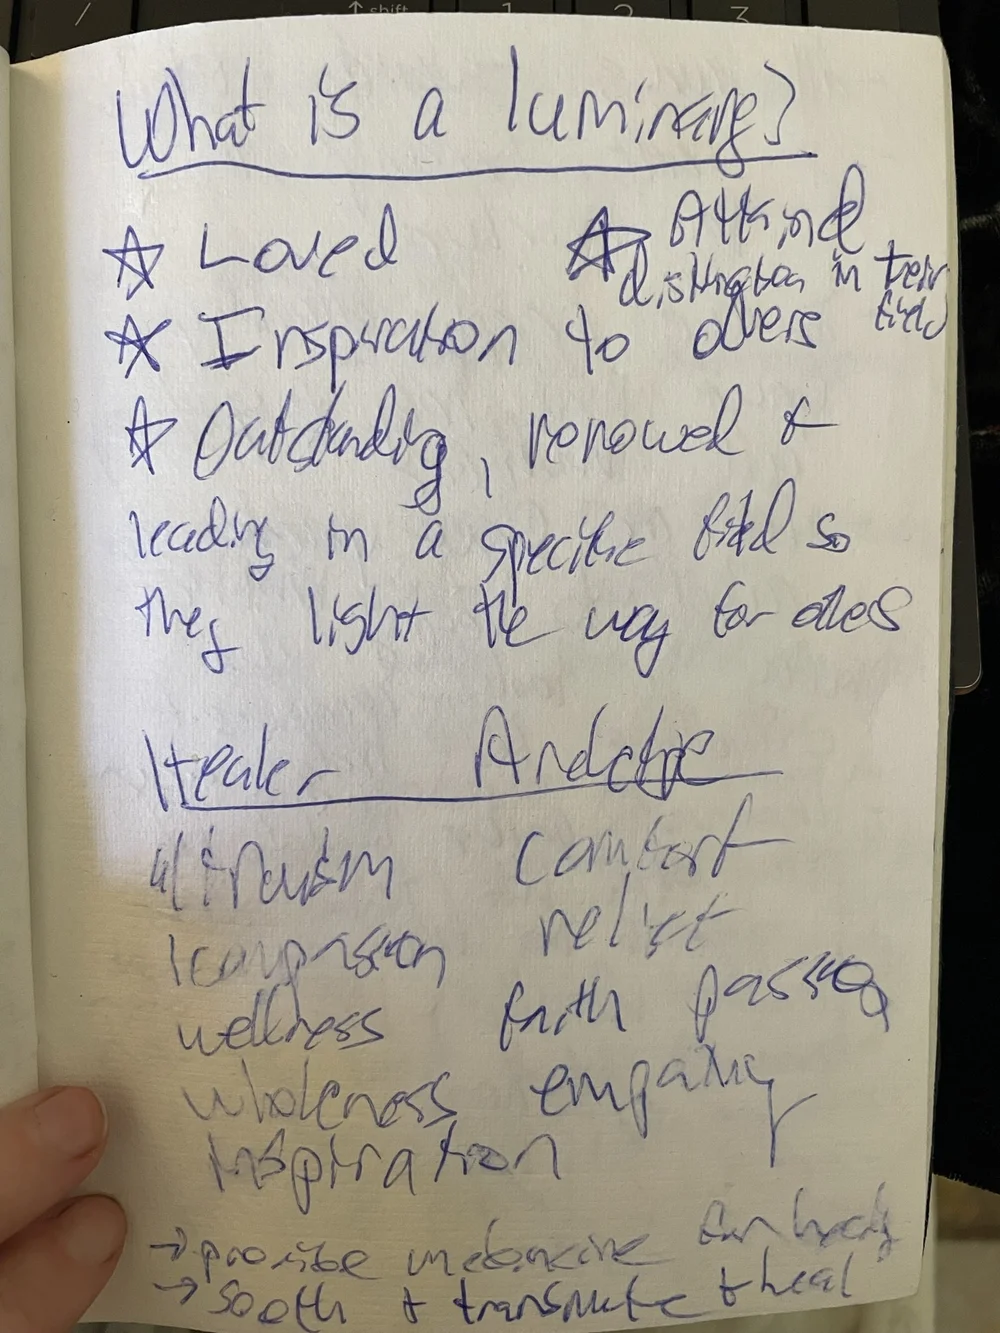 shift
1 2 3
What is a luminary?
☆ Loved
☆ Attained
distinction in their
field
☆ Inspiration to others
☆ Outstanding, renowed &
leading in a specific field so
they light the way for others
Healer Archetype
altruism comfort
compassion relief
wellness faith passion
wholeness empathy
Inspiration
→ provide medicine for body
→ sooth & transmute & heal